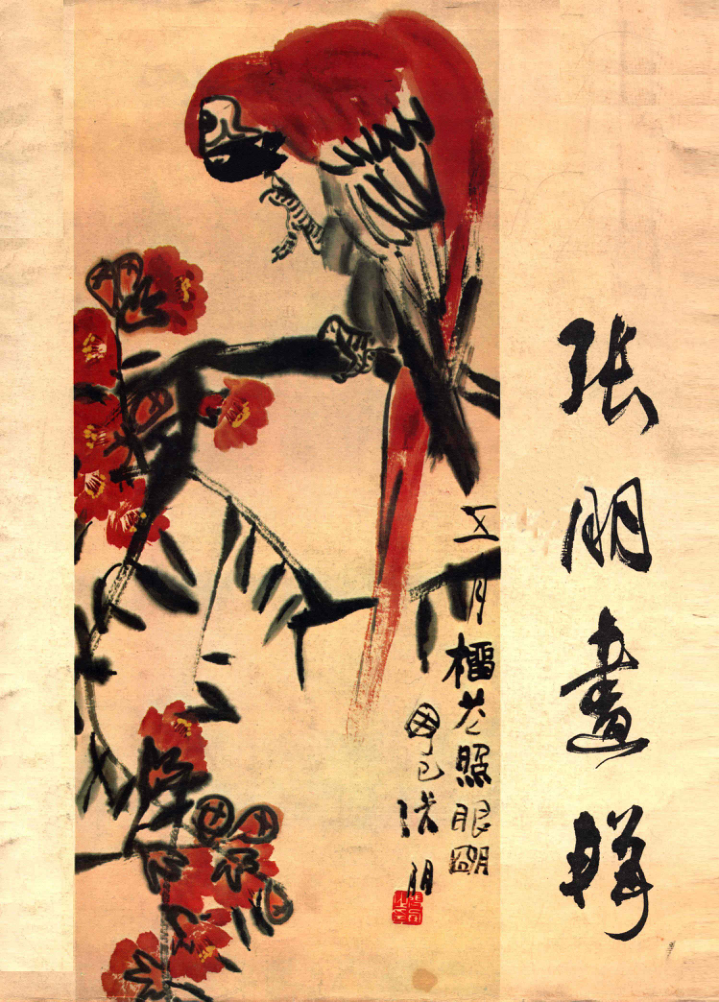 张朋畫辑
五月榴花照眼明
巳张朋